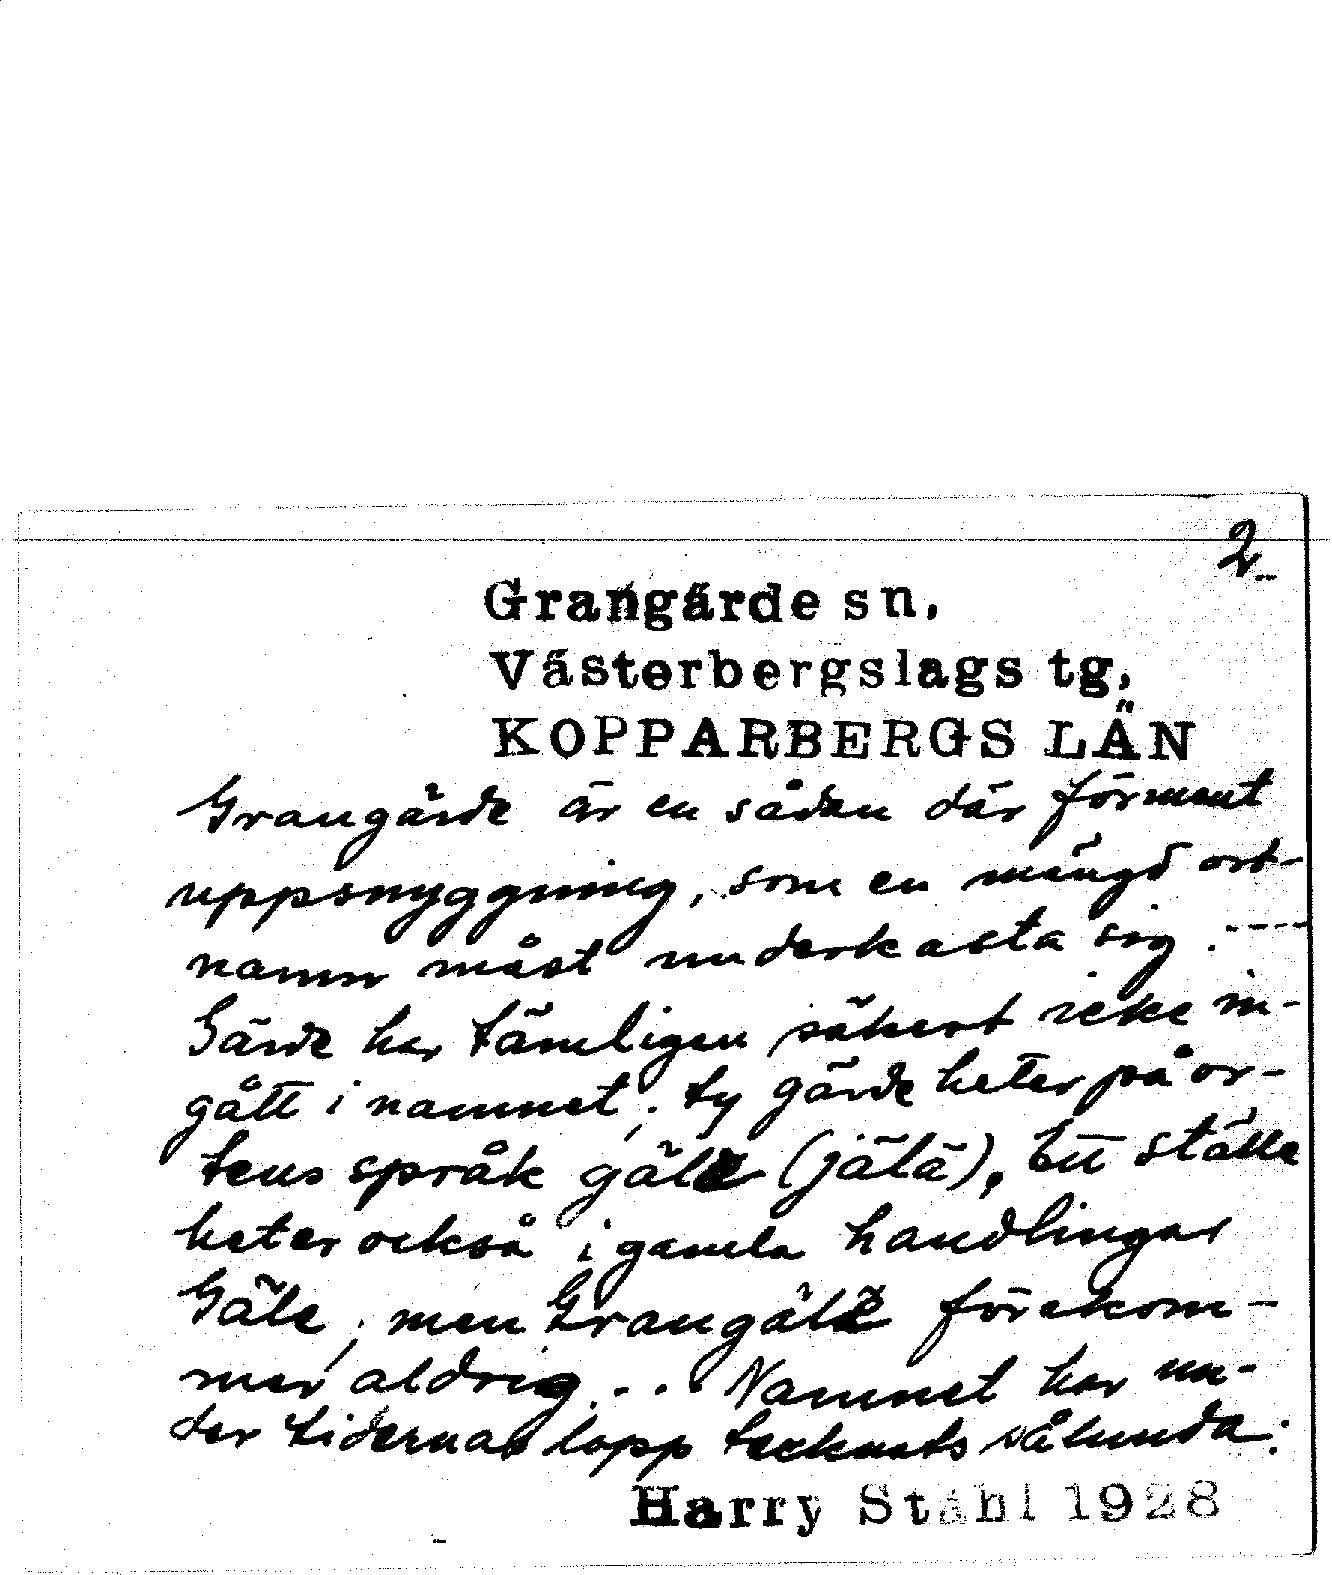 2
Grangärde sn.
Västerbergslags tg,
KOPPARBERGS LÄN
Grangärde är en sådan där förment
uppsnyggning, som en mängd ort-
namn måst underkasta sig. ----
Gärde har tämligen säkert icke in-
gått i namnet; ty gärde heter på or-
tens språk gäle (jälä), Ett ställe
heter också i gamla handlingar
Gäle, men Grangäle förekom-
mer aldrig... Namnet har un-
der tidernas lopp tecknats sålunda:
Harry Ståhl 1928